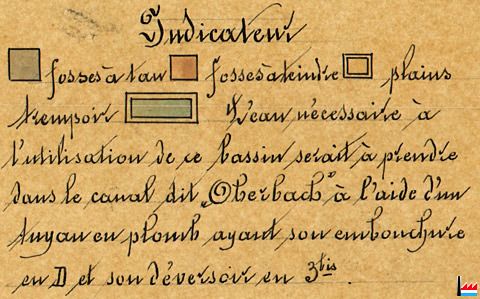 Indicateur
fosses à tan fosses à teindre plains
trempoir L'eau nécessaire à
l'utilisation de ce bassin serait à prendre
dans le canal dit „Oberbach" à l'aide d'un
tuyau en plomb ayant son embouchure
en D et son déversoir en 3bis.